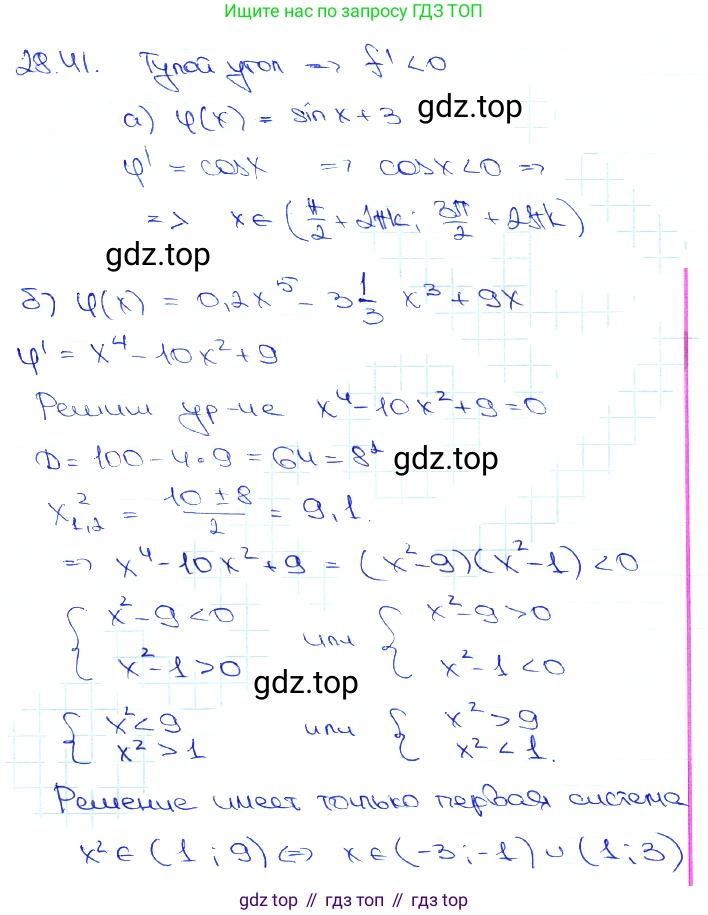 Ищите нас по запросу ГДЗ ТОП
28.41. Тупой угол => f' < 0
а) φ(x) = sin x + 3
gdz.top
φ' = cos x => cos x < 0 =>
=> x ∈ (π/2 + 2πk; 3π/2 + 2πk)
gdz.top
б) φ(x) = 0,2x⁵ - 3 1/3 x³ + 9x
φ' = x⁴ - 10x² + 9
Решим ур-ие x⁴ - 10x² + 9 = 0
D = 100 - 4·9 = 64 = 8² gdz.top
x²₁,₂ = (10 ± 8)/2 = 9, 1.
=> x⁴ - 10x² + 9 = (x² - 9)(x² - 1) < 0
{ x² - 9 < 0 или { x² - 9 > 0
x² - 1 > 0 x² - 1 < 0
gdz.top
{ x² < 9 или { x² > 9
x² > 1 x² < 1.
Решение имеет только первая система
x² ∈ (1; 9) ⇔ x ∈ (-3; -1) ∪ (1; 3)
gdz.top // гдз топ // гдз.топ